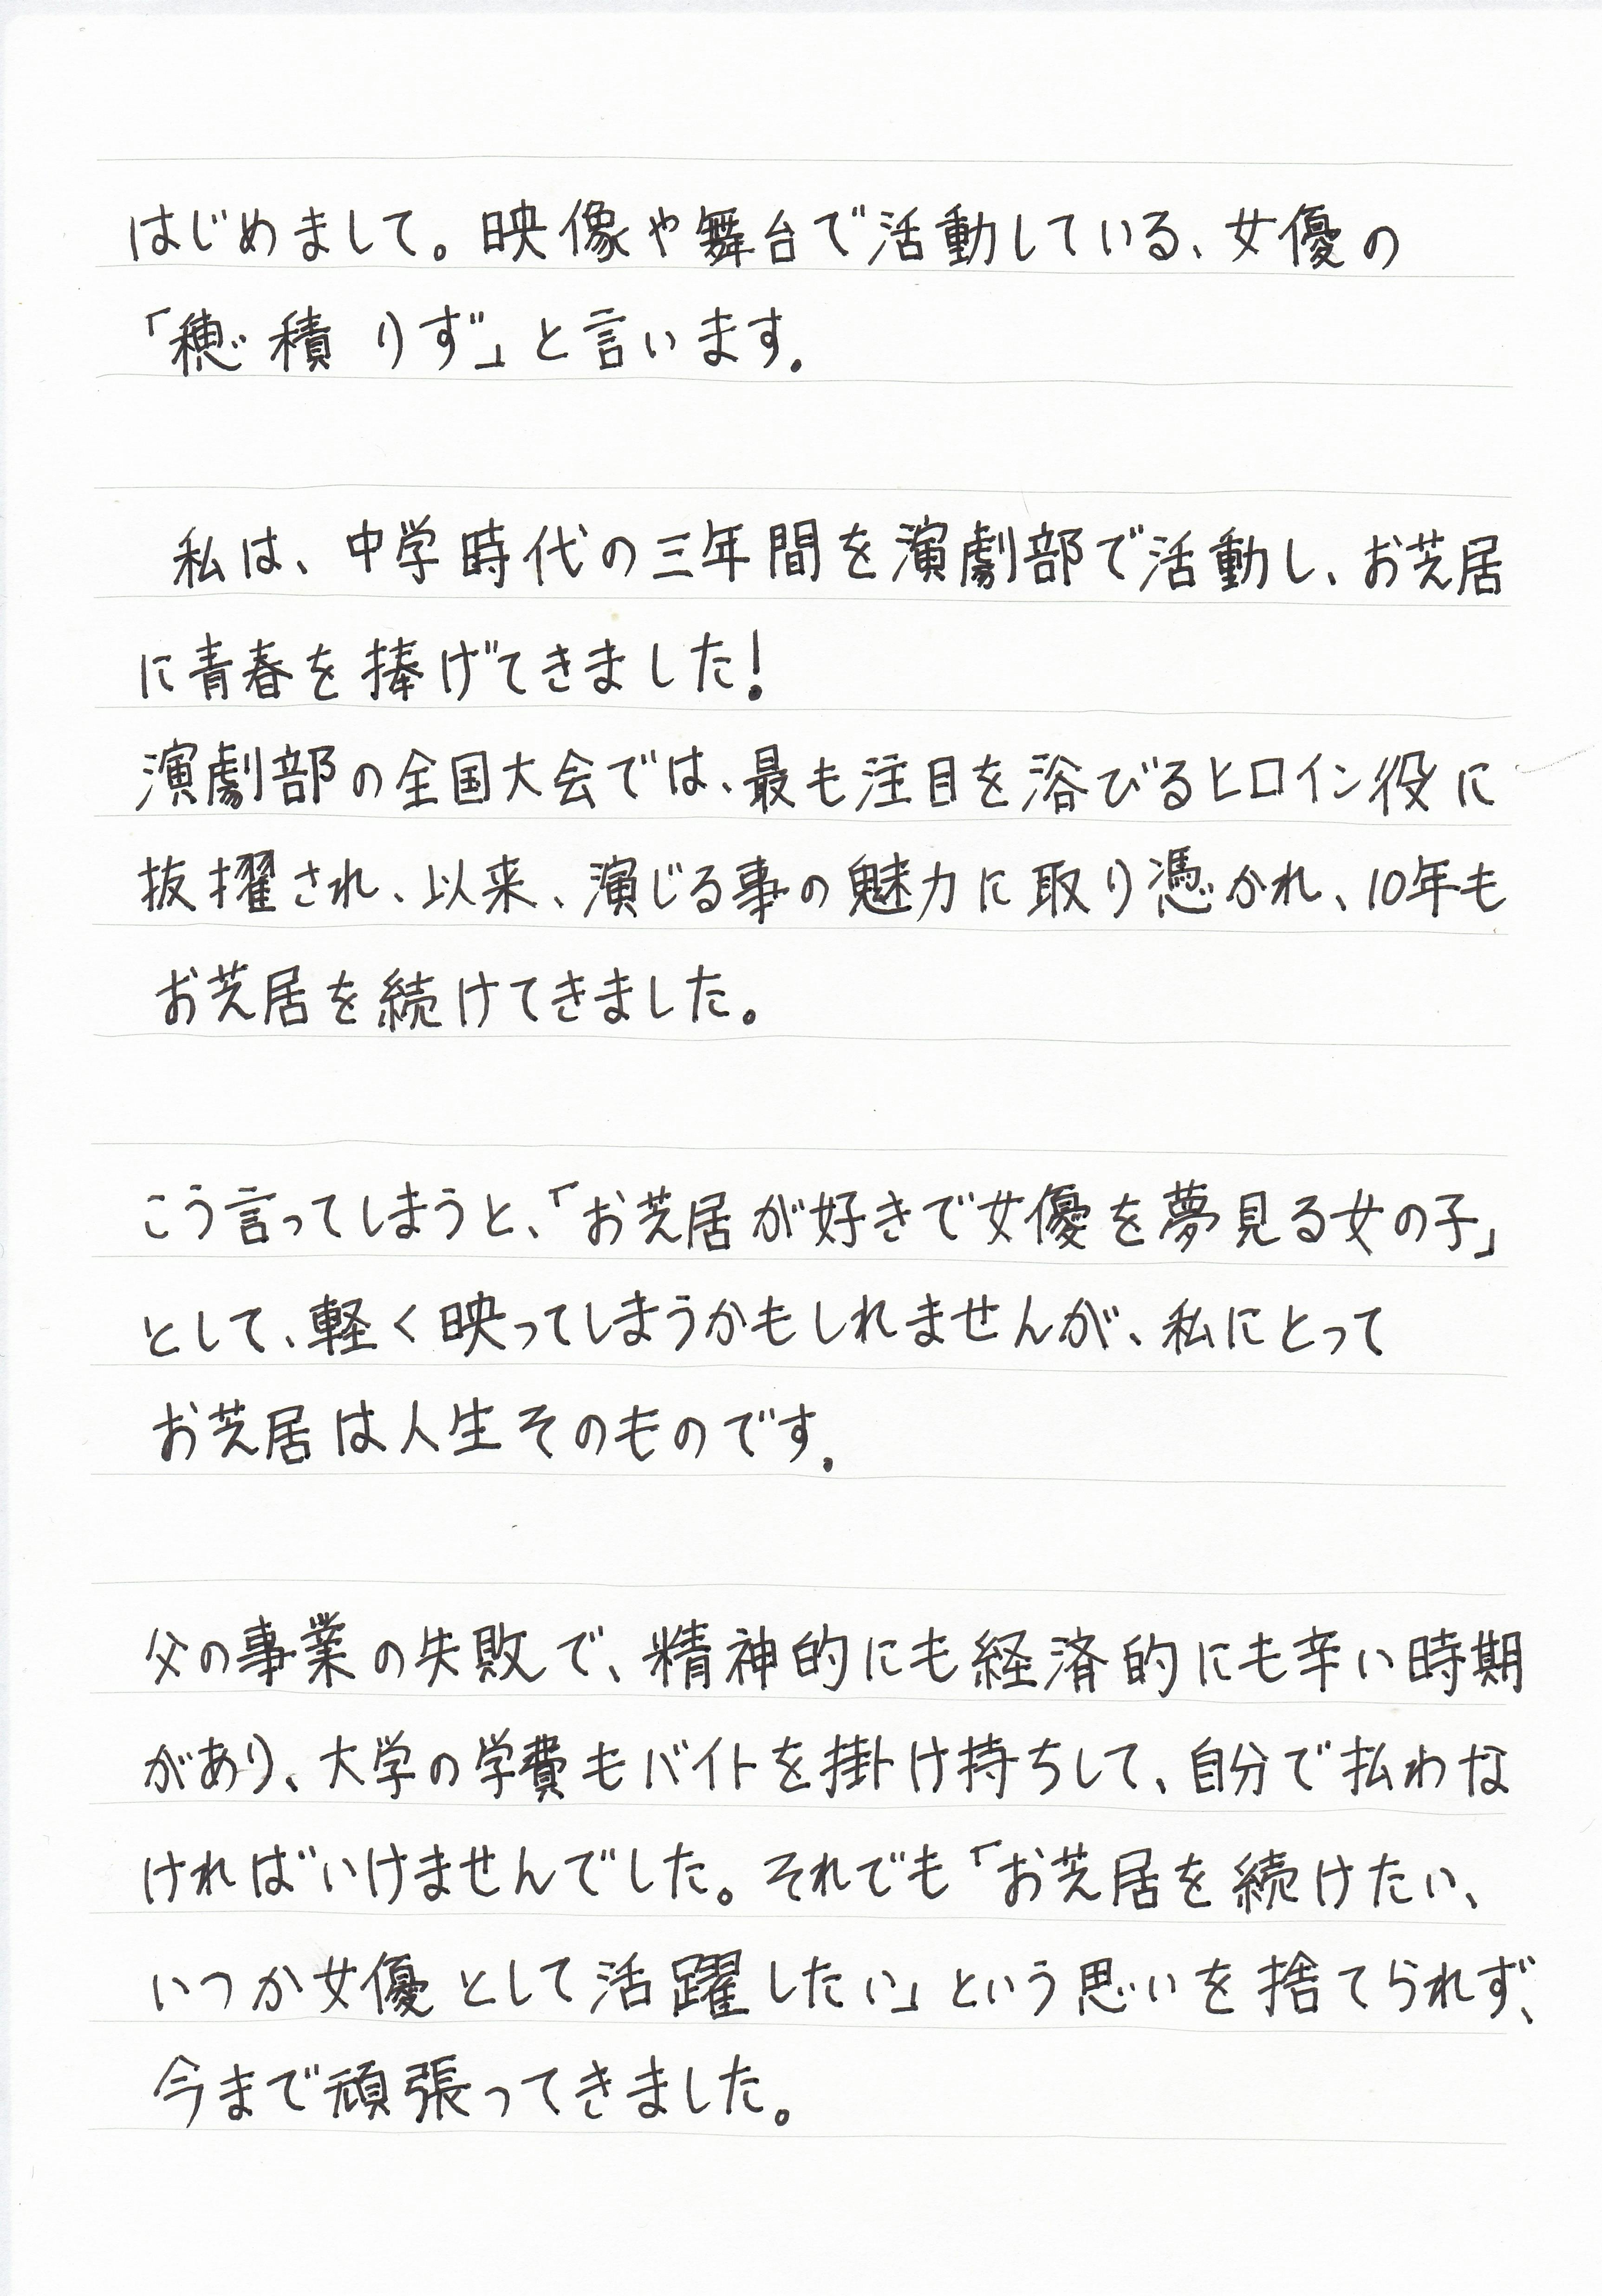 はじめまして。映像や舞台で活動している、女優の
「穂積 りず」と言います。
私は、中学時代の三年間を演劇部で活動し、お芝居
に青春を捧げてきました!
演劇部の全国大会では、最も注目を浴びるヒロイン役に
抜擢され、以来、演じる事の魅力に取り憑かれ、10年も
お芝居を続けてきました。
こう言ってしまうと、「お芝居が好きで女優を夢見る女の子」
として、軽く映ってしまうかもしれませんが、私にとって
お芝居は人生そのものです。
父の事業の失敗で、精神的にも経済的にも辛い時期
があり、大学の学費もバイトを掛け持ちして、自分で払わな
ければいけませんでした。それでも「お芝居を続けたい、
いつか女優として活躍したい」という思いを捨てられず、
今まで頑張ってきました。